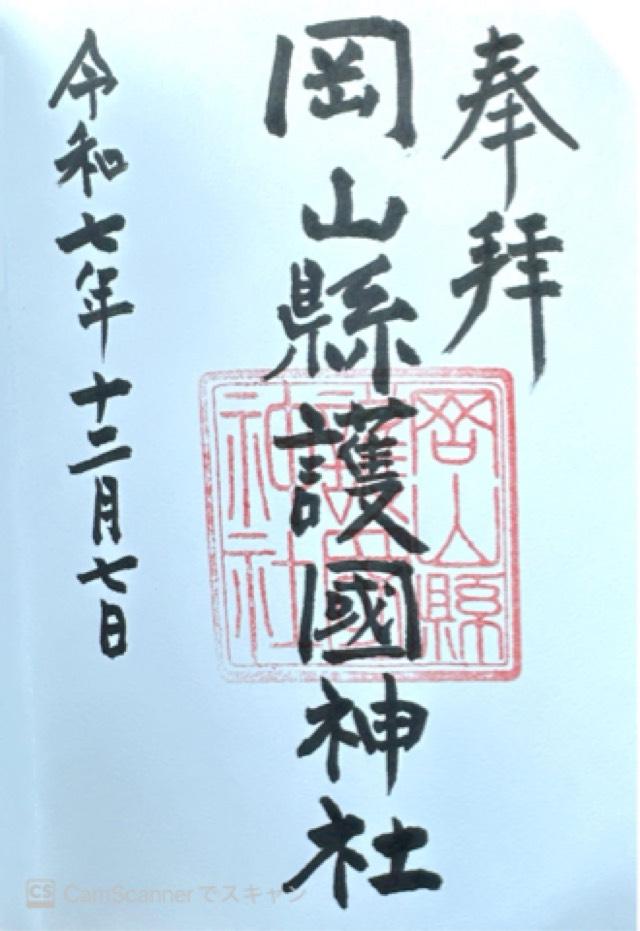 奉拝
岡山縣護國神社
岡山縣
護國
神社
令和七年十二月七日
CS CamScannerでスキャン